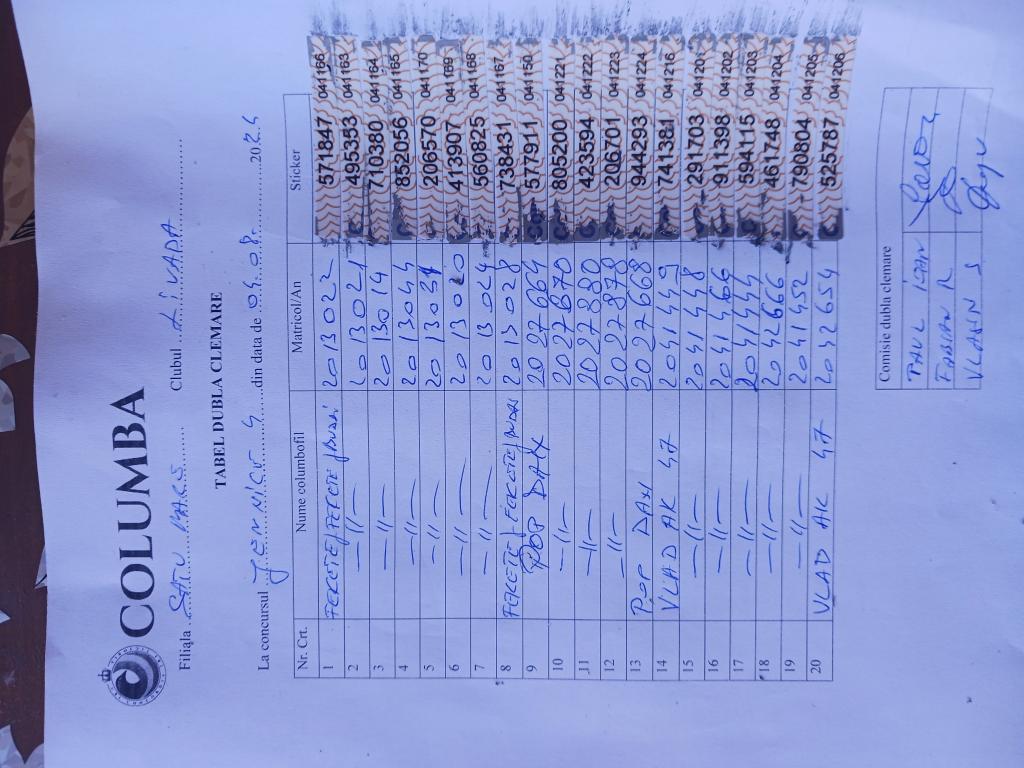 COLUMBA
Filiala SATU MARE Clubul LIVADA
TABEL DUBLA CLEMARE
La concursul JEMNICE 4 din data de 04.08. 2024
Nr. Crt. Nume columbofil Matricol/An Sticker
1 FEKETE/FEKETE/BUDAI 2013022 571847 041166
2 –//– 2013021 495353 041163
3 –//– 2013014 710380 041164
4 –//– 2013044 852056 041165
5 –//– 2013031 206570 041170
6 –//– 2013020 413907 041169
7 –//– 2013024 560825 041168
8 FEKETE/FEKETE/BUDAI 2013028 738431 041167
9 POP DAN 2027664 577911 041150
10 –//– 2027670 805200 041221
11 –//– 2027880 423594 041222
12 –//– 2027878 206701 041223
13 POP DAN 2027668 944293 041224
14 VLAD AK 47 2041449 741381 041216
15 –//– 2041448 291703 041201
16 –//– 2041466 911398 041202
17 –//– 2041444 594115 041203
18 –//– 2042666 461748 041204
19 –//– 2041452 790804 041205
20 VLAD AK 47 2042654 525787 041206
Comisie dubla clemare
PAUL IOAN
FABIAN R.
VLAIN S